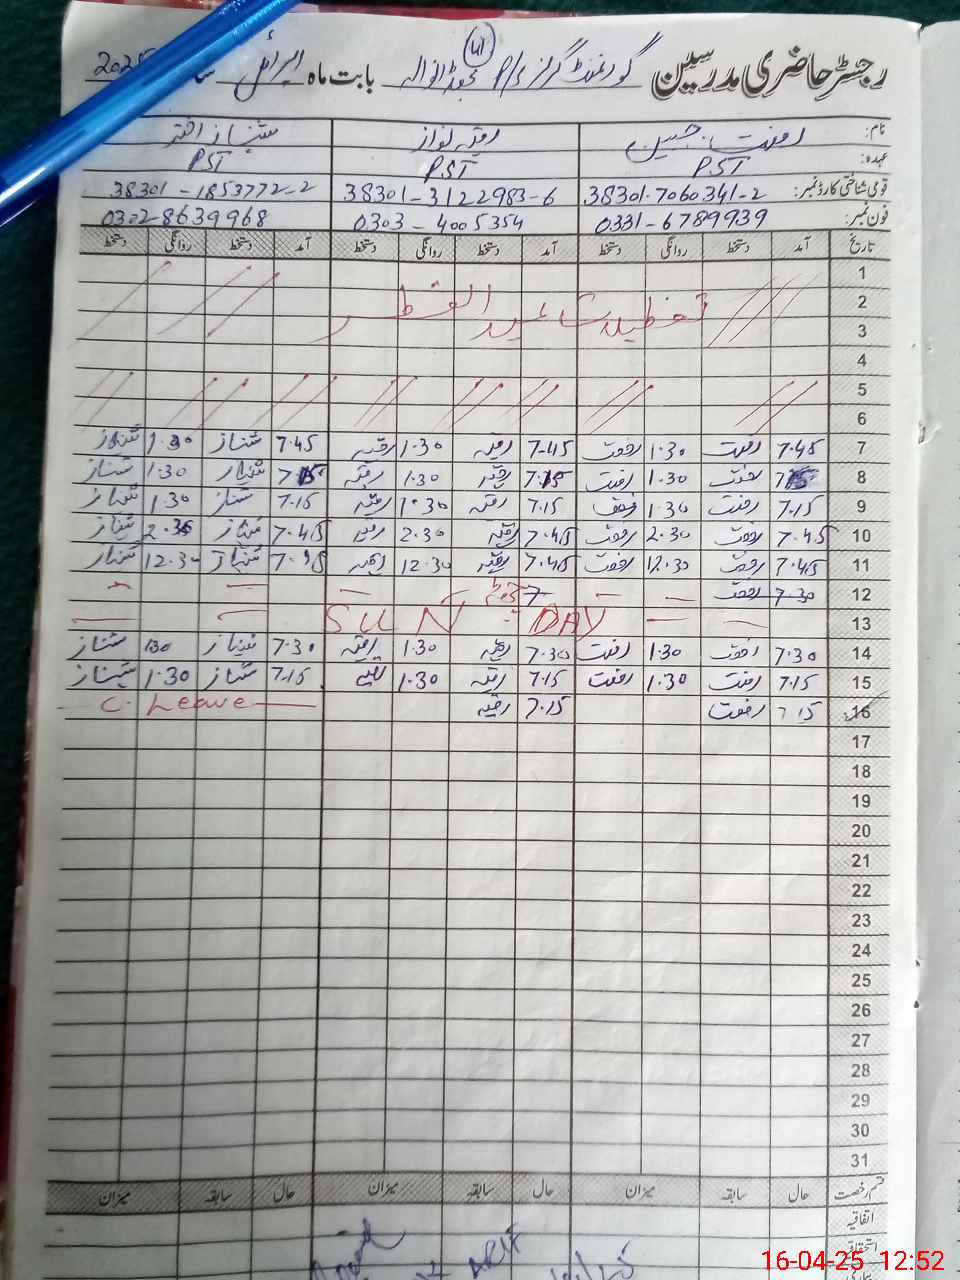 رجسٹر حاضری مدرسین گورنمنٹ گرلز P/S بابت ماہ اپریل 2025
41
نام: رفعت جبین رقیہ نواز شہناز اختر
عہدہ: PST PST PST
قومی شناختی کارڈ نمبر: 38301-7060341-2 38301-3122983-6 38301-1853772-2
فون نمبر: 0331-6789939 0303-4005354 0302-8639968
تاریخ آمد دستخط روانگی دستخط آمد دستخط روانگی دستخط آمد دستخط روانگی دستخط
1
2 تعطیلات عید الفطر
3
4
5
6
7 7.45 رفعت 1.30 رفعت 7.45 رقیہ 1.30 رقیہ 7.45 شہناز 1.30 شہناز
8 7.15 رفعت 1.30 رفعت 7.15 رقیہ 1.30 رقیہ 7.15 شہناز 1.30 شہناز
9 7.15 رفعت 1.30 رفعت 7.15 رقیہ 1.30 رقیہ 7.15 شہناز 1.30 شہناز
10 7.45 رفعت 2.30 رفعت 7.45 رقیہ 2.30 رقیہ 7.45 شہناز 2.30 شہناز
11 7.45 رفعت 12.30 رفعت 7.45 رقیہ 12.30 رقیہ 7.45 شہناز 12.30 شہناز
12 7.30 رفعت 7
13 SUNDAY
14 7.30 رفعت 1.30 رفعت 7.30 رقیہ 1.30 رقیہ 7.30 شہناز 1.30 شہناز
15 7.15 رفعت 1.30 رفعت 7.15 رقیہ 1.30 رقیہ 7.15 شہناز 1.30 شہناز
16 7.15 رفعت 7.15 رقیہ C. Leave
17
18
19
20
21
22
23
24
25
26
27
28
29
30
31
قسم رخصت حال سابقہ میزان حال سابقہ میزان حال سابقہ میزان
اتفاقیہ
استحقاقیہ
16-04-25 12:52